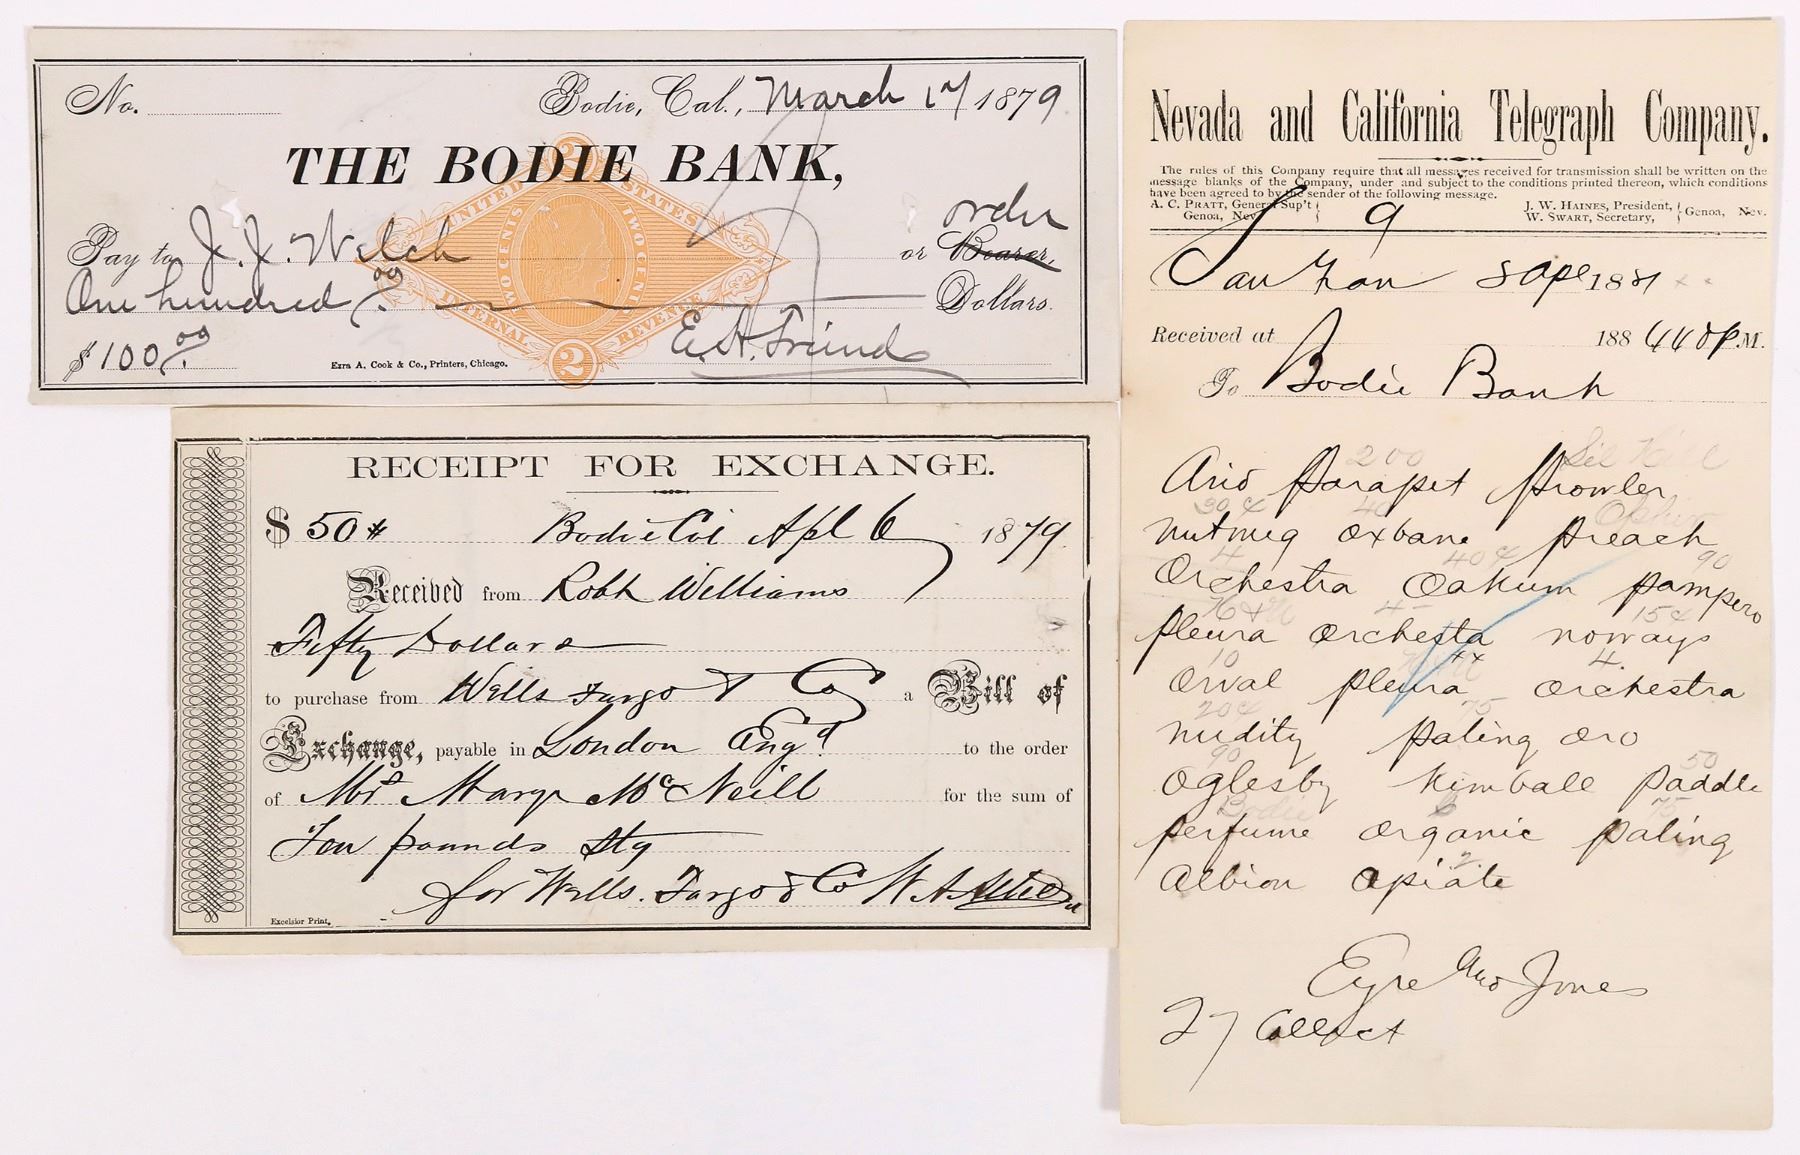 No. Bodie, Cal., March 17 1879
THE BODIE BANK,
order
Pay to J. J. Welch or Bearer,
One hundred 00 Dollars.
$ 100 00 E. H. Friend
Ezra A. Cook & Co., Printers, Chicago.
UNITED STATES
TWO CENTS TWO CENTS
INTERNAL REVENUE
2
RECEIPT FOR EXCHANGE.
$ 50 Bodie Cal Apl 6 1879
Received from Robt Williams
Fifty Dollars
to purchase from Wells Fargo & Co a Bill of
Exchange, payable in London Engd to the order
of Mrs Mary McNeill for the sum of
Ten pounds Stg
for Wells. Fargo & Co W A
Excelsior Print.
Nevada and California Telegraph Company.
The rules of this Company require that all messages received for transmission shall be written on the
message blanks of the Company, under and subject to the conditions printed thereon, which conditions
have been agreed to by the sender of the following message.
A. C. PRATT, General Sup't J. W. HAINES, President,
Genoa, Nev. W. SWART, Secretary, Genoa, Nev.
9
San Fran 8 Ape 1881
Received at 188 440 P.M.
To Bodie Bank
200
Arid Parapet Prowler
30¢ 40 Ophir
nutmeg oxbane preach
4 40¢ 90
Orchestra Oakum pampero
15¢
pleura orchestra noways
10 4.
Orval pleura orchestra
20¢ 75
nudity paling oro
90 50
Oglesby Kimball paddle
Bodie 6 75
perfume organic paling
2
Albion opiate
Eyre and Jones
27 Collect